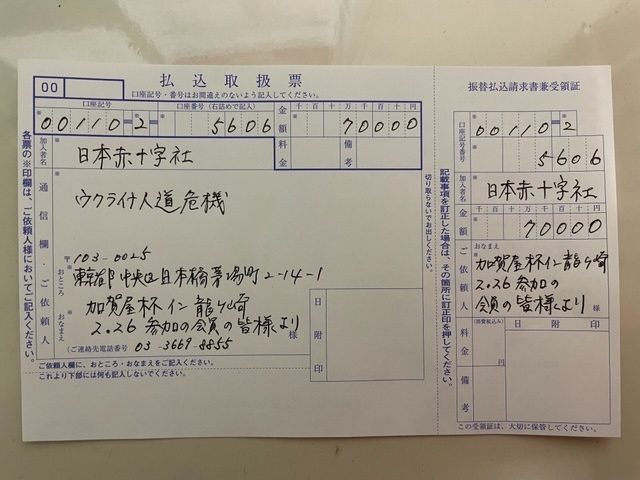 00
払込取扱票
口座記号・番号はお間違えのないよう記入してください。
口座記号
口座番号(右詰めで記入)
金額
千 百 十 万 千 百 十 円
00110=2=
5606
70000
加入者名
日本赤十字社
料金
備考
通信欄・ご依頼人
ウクライナ人道危機
〒103-0025
おところ
東京都中央区日本橋茅場町2-14-1
加賀屋杯イン龍ヶ崎
おなまえ
2.26参加の会員の皆様より
様
(ご連絡先電話番号 03-3669-8855
日附印
ご依頼人欄に、おところ・おなまえをご記入ください。
これより下部には何も記入しないでください。
各票の※印欄は、ご依頼人様においてご記入ください。
切り取らないでお出しください。
記載事項を訂正した場合は、その箇所に訂正印を押してください。
振替払込請求書兼受領証
口座記号番号
00110=2
5606
加入者名
日本赤十字社
金額
千 百 十 万 千 百 十 円
70000
ご依頼人
おなまえ
加賀屋杯イン龍ヶ崎
2.26参加の
会員の皆様より
様
料金
(消費税込み)
円
日附印
備考
この受領証は、大切に保管してください。